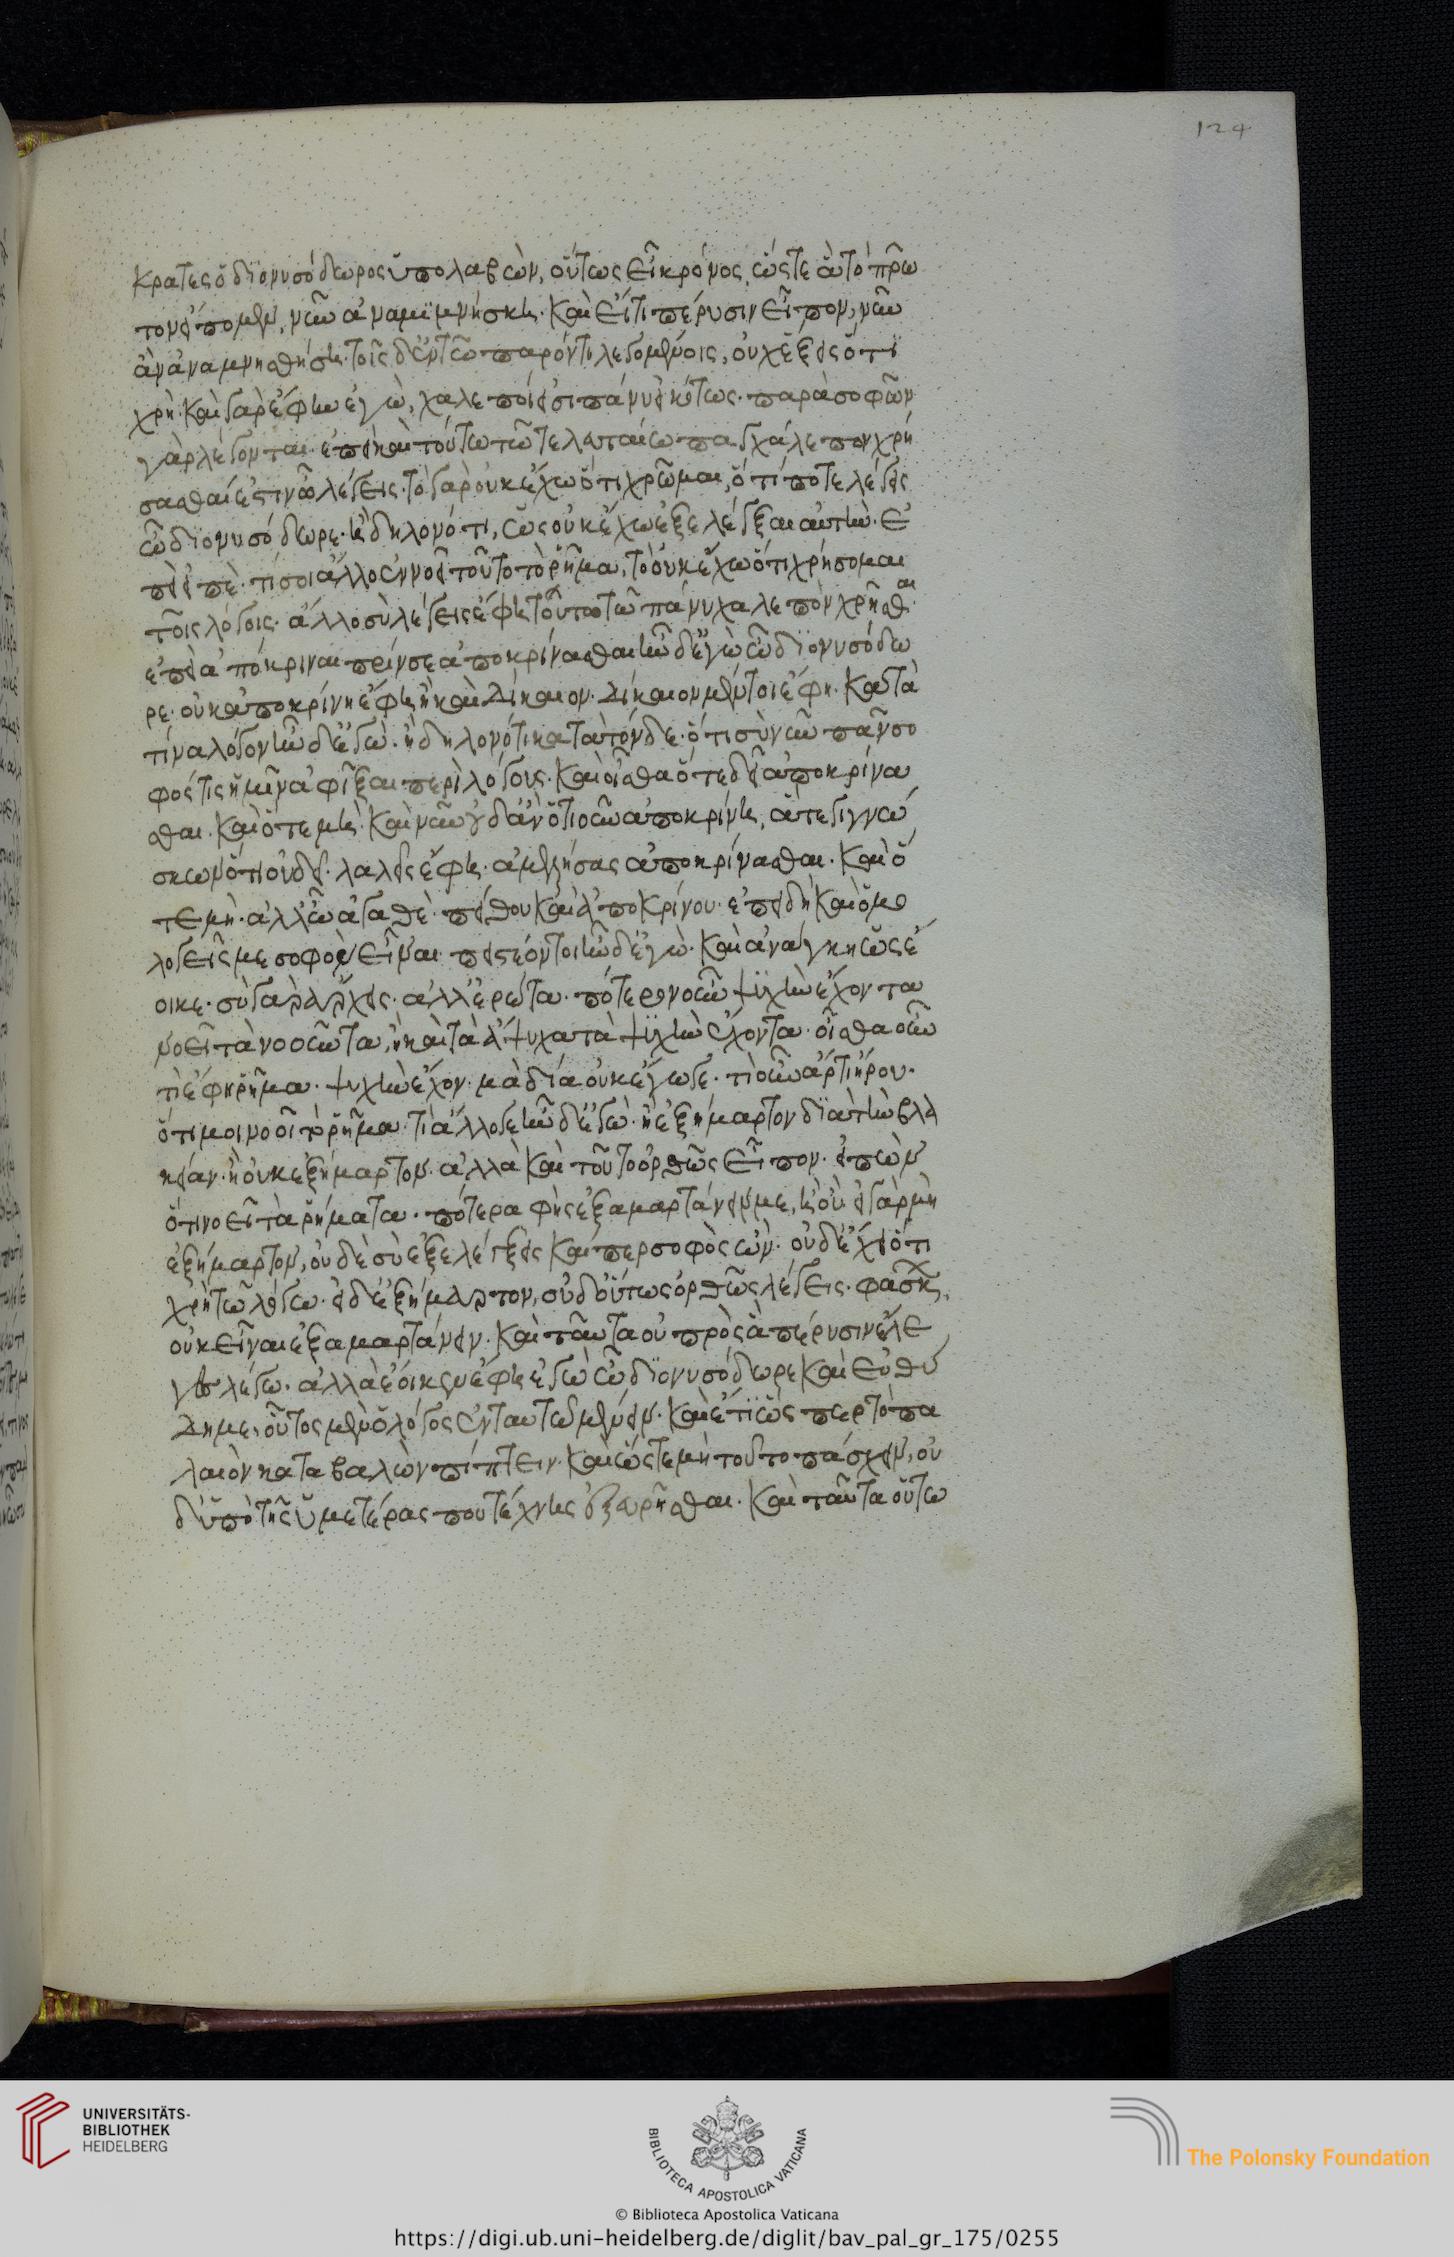 124
κρατες ὁ διονυσόδωρος ὑπολαβὼν, οὕτως εἶ κρόνος, ὥστε ἃ τὸ πρῶ
τον εἴπομεν, νῦν ἀναμιμνήσκη. καὶ εἴ τι πέρυσιν εἶπον, νῦν
ἀναμνησθήση. τοῖς δ' ἐν τῶ παρόντι λεγομένοις, οὐχ ἕξεις ὅτι
χρῆ. καὶ γὰρ ἔφην ἐγὼ, χαλεποί εἰσι πάνυ εἰκότως. παρὰ σοφῶν
γὰρ λέγονται. ἐπεὶ καὶ τούτω τῶ τελευταίω παγχάλεπον χρή
σασθαί ἐστιν ὧ λέγεις. τὸ γὰρ οὐκ ἔχω ὅτι χρῶμαι, ὅ τί ποτε λέγεις
ὦ διονυσόδωρε. ἢ δηλονότι, ὡς οὐκ ἔχω ἐξελέγξαι αὐτὸν. ἐ
πεὶ εἰπὲ. τί σοι ἄλλο ἐννοεῖ τοῦτο τὸ ῥῆμα, τὸ οὐκ ἔχω ὅτι χρήσομαι
τοῖς λόγοις. ἀλλ' ὃ σὺ λέγεις ἔφη τούτω τῶ πάνυ χαλεπὸν χρῆσθαι.
ἐπεὶ ἀπόκριναι. πρίν σε ἀποκρίνασθαι ἦν δ' ἐγὼ ὦ διονυσόδω
ρε. οὐκ ἀποκρίνη ἔφη. ἦ καὶ δίκαιον. δίκαιον μέντοι ἔφη. κατὰ
τίνα λόγον ἦν δ' ἐγὼ. ἢ δηλονότι κατὰ τόνδε. ὅτι σὺ νῦν πάνσο
φός τις ἡμῖν ἀφῖξαι περὶ λόγους. καὶ οἶσθα ὅτε δεῖ ἀποκρίνα
σθαι. καὶ ὅτε μὴ. καὶ νῦν οὐδ' ἂν ὁτιοῦν ἀποκρίνη, ἅτε γιγνώ
σκων ὅτι οὐ δεῖ. λαλεῖς ἔφη. ἀμελήσας ἀποκρίνασθαι. καὶ ὅ
τε μὴ. ἀλλ' ὦ ἀγαθὲ. πείθου καὶ ἀποκρίνου. ἐπειδὴ καὶ ὁμο
λογεῖς με σοφὸν εἶναι. πειστέον τοι ἦν δ' ἐγὼ. καὶ ἀνάγκη ὡς ἔ
οικε. σὺ γὰρ ἄρχεις. ἀλλ' ἐρώτα. πότερον οὖν ψυχὴν ἔχοντα
νοεῖ τὰ νοοῦντα, ἢ καὶ τὰ ἄψυχα. τὰ ψυχὴν ἔχοντα. οἶσθα οὖν
τὶ ἔφη ῥῆμα. ψυχὴν ἔχον. μὰ δία οὐκ ἔγωγε. τὶ οὖν ἄρτι ἤρου.
ὅτι μοι νοοῖ τὸ ῥῆμα. τὶ ἄλλό γε ἦν δ' ἐγὼ. ἢ ἐξήμαρτον διὰ τὴν βλα
κείαν. ἢ οὐκ ἐξήμαρτον. ἀλλὰ καὶ τοῦτο ὀρθῶς εἶπον. εἰπὼν
ὅτι νοεῖ τὰ ῥήματα. πότερα φὴς ἐξαμαρτάνειν με, ἢ οὐ. εἰ γὰρ μὴ
ἐξήμαρτον, οὐδὲ σὺ ἐξελέγξεις καίπερ σοφὸς ὢν. οὐδ' ἔχεις ὅτι
χρῆ τῶ λόγω. εἰ δ' ἐξήμαρτον, οὐδ' οὕτως ὀρθῶς λέγεις. φάσκων
οὐκ εἶναι ἐξαμαρτάνειν. καὶ ταῦτα οὐ πρὸς ἃ πέρυσιν ἔλε
γες λέγω. ἀλλὰ ἔοικεν ἔφην ἐγὼ ὦ διονυσόδωρε καὶ εὐθύ
δημε, οὗτος μὲν ὁ λόγος ἐν ταυτῶ μένειν. καὶ ἔτι ὥσπερ τὸ πα
λαιὸν καταβαλὼν πίπτειν. καὶ ὥστε μὴ τοῦτο πάσχειν, οὐ
δ' ὑπὸ τῆς ὑμετέρας που τέχνης ἐξευρῆσθαι. καὶ ταῦτα οὕτω
UNIVERSITÄTS-
BIBLIOTHEK
HEIDELBERG
BIBLIOTECA APOSTOLICA VATICANA
The Polonsky Foundation
© Biblioteca Apostolica Vaticana
https://digi.ub.uni-heidelberg.de/diglit/bav_pal_gr_175/0255